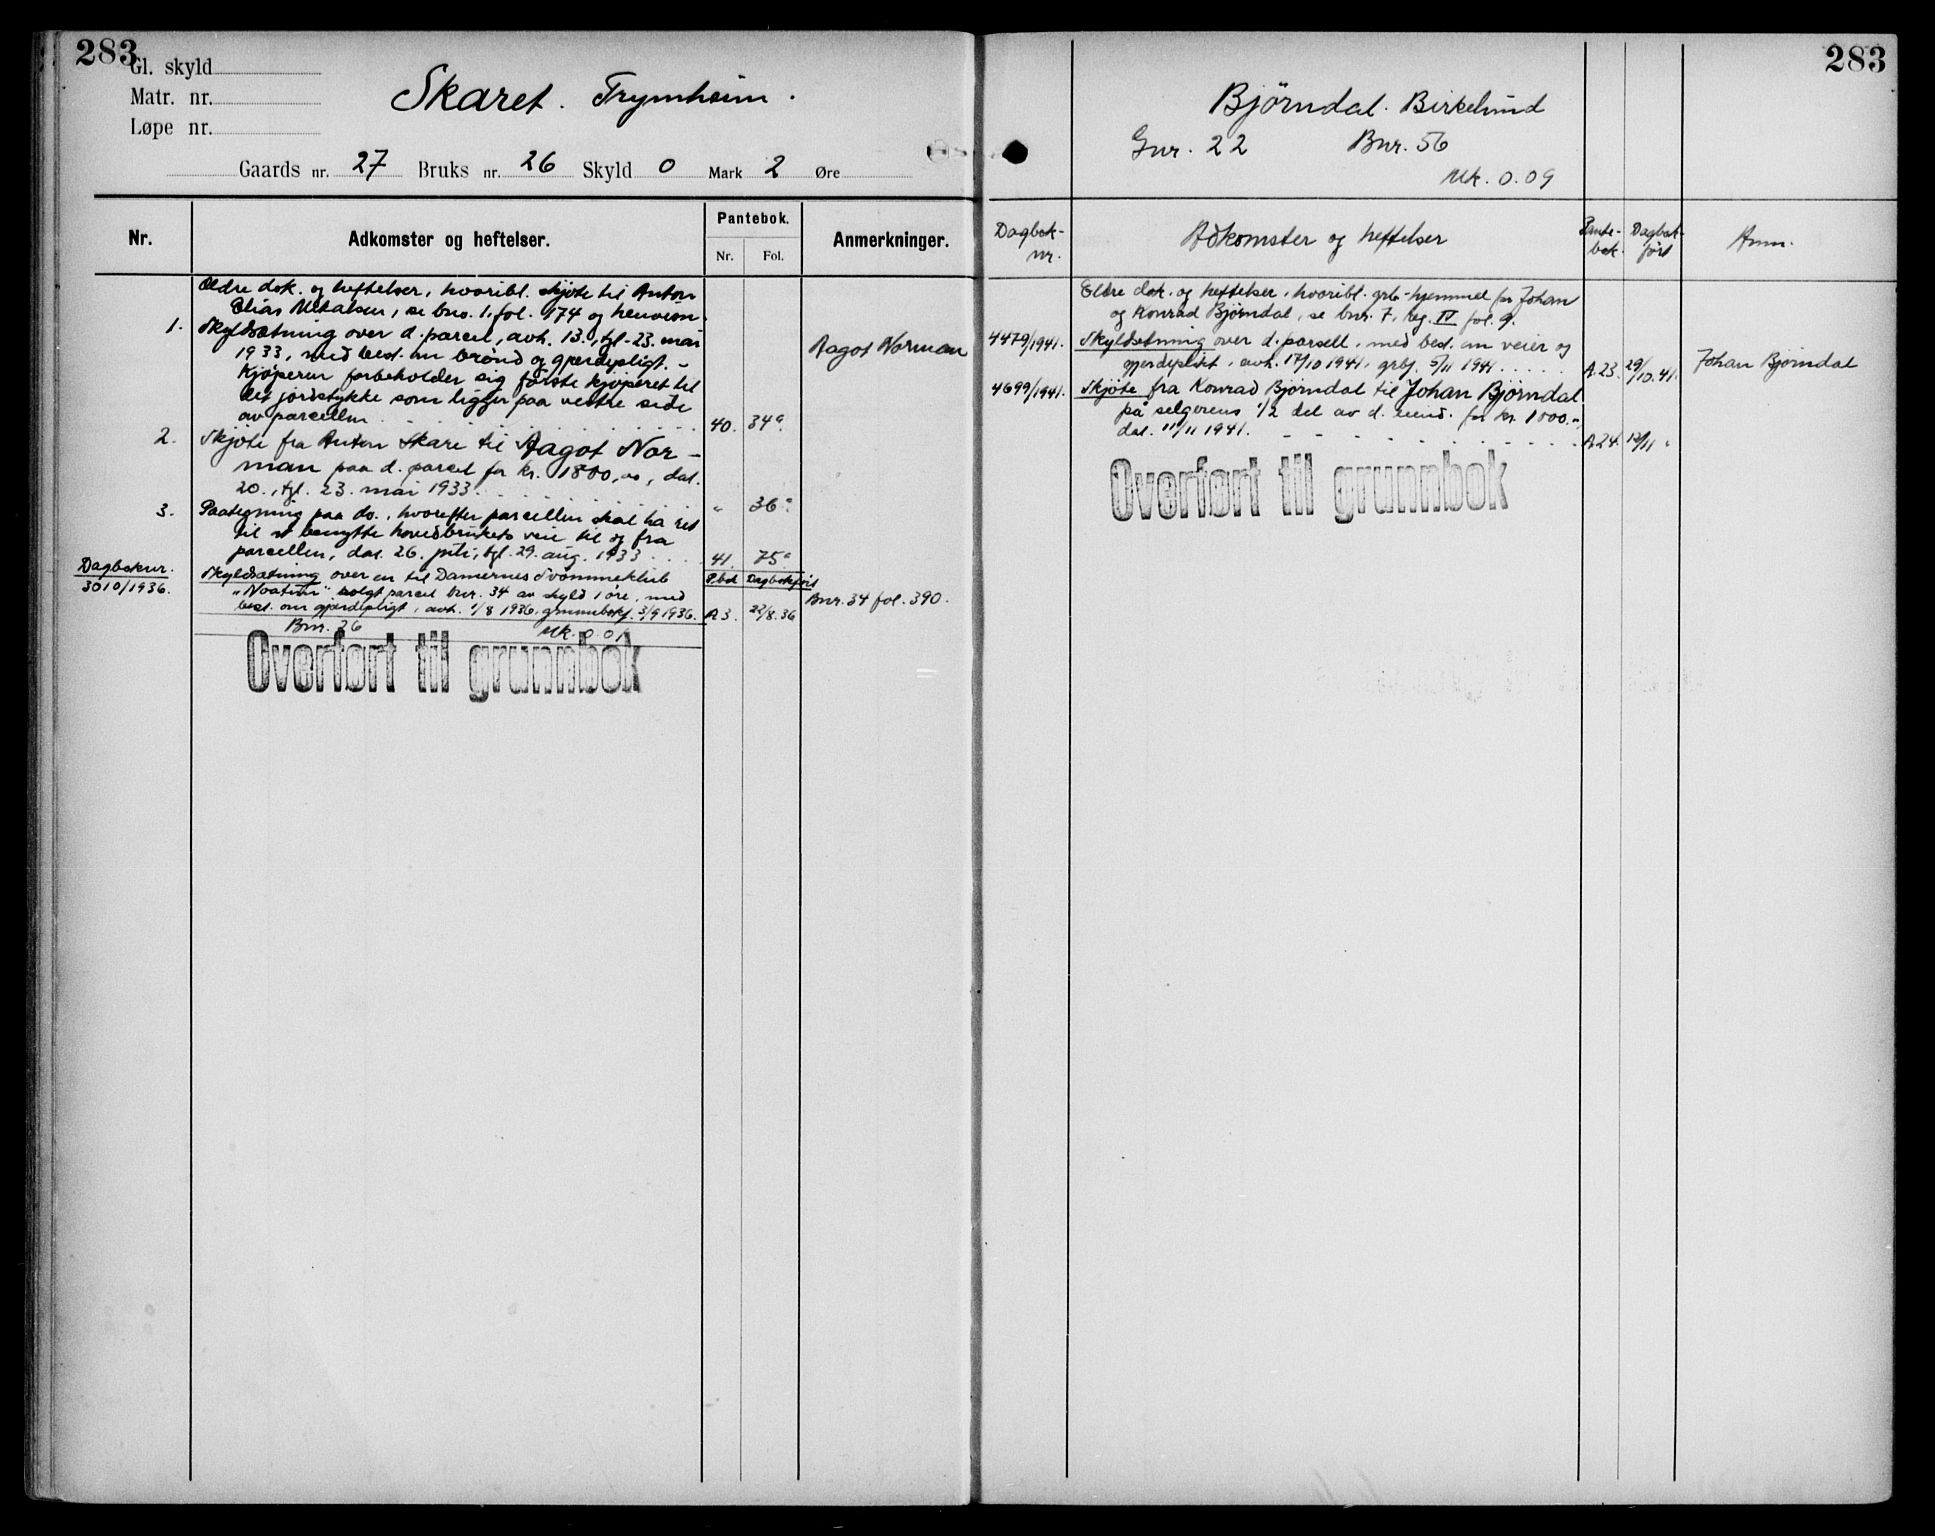 283
Gl. skyld
Matr. nr.
Løpe nr.
Skaret. Trymheim.
Gaards nr. 27 Bruks nr. 26 Skyld 0 Mark 2 Øre
Nr.
Adkomster og heftelser.
Pantebok.
Nr. Fol.
Anmerkninger.
Eldre dok. og heftelser, hvoribl. skjøte til Anton
Elias Mikalsen, se bno. 1, fol. 174 og henvisn.
1. Skyldsætning over d. parcel, avh. 13., tgl. 23. mai
1933, med best. om brønd og gjærdepligt. -
Kjøperen forbeholder sig første kjøperet til
det jordstykke som ligger paa vestre side
av parcellen 40. 34a.
Aagot Norman
2. Skjøte fra Anton Skare til Aagot Nor-
man paa d. parcel for kr. 1800,00, dat.
20., tgl. 23. mai 1933. " 36a.
3. Paategning paa do., hvorefter parcellen skal ha ret
til at benytte hovedbrukets vei til og fra
parcellen, dat. 26. juli, tgl. 29. aug. 1933 41. 75a
Dagboknr.
3010/1936.
Skyldsætning over en til Damernes Svømmeklub
P.bok Dagbokført
"Noatun" solgt parcel bnr. 34 av skyld 1 øre, med
best. om gjærdepligt, avh. 1/8 1936, grunnbokf. 3/9 1936. A3. 22/8.36
Bnr. 34 fol. 390.
Bnr. 26 Mk. 0.01
Overført til grunnbok
283
Bjørndal. Birkelund
Gnr. 22 Bnr. 56
Mk. 0.09
Dagbok-
nr.
Adkomster og heftelser
Pante-
bok.
Dagbok-
ført
Anm.
Eldre dok. og heftelser, hvoribl. grb-hjemmel for Johan
og Konrad Bjørndal, se bnr. 7, reg. IV fol. 9.
4479/1941. Skyldsetning over d. parsell, med best. om veier og
gjerdeplikt, avh. 17/10 1941, grbf. 5/11 1941. A.23. 29/10.41.
Johan Bjørndal
4699/1941. Skjøte fra Konrad Bjørndal til Johan Bjørndal
på selgerens 1/2 del av d. eiend. for kr. 1000.-,
dat. 11/11 1941. A24. 12/11 "
Overført til grunnbok